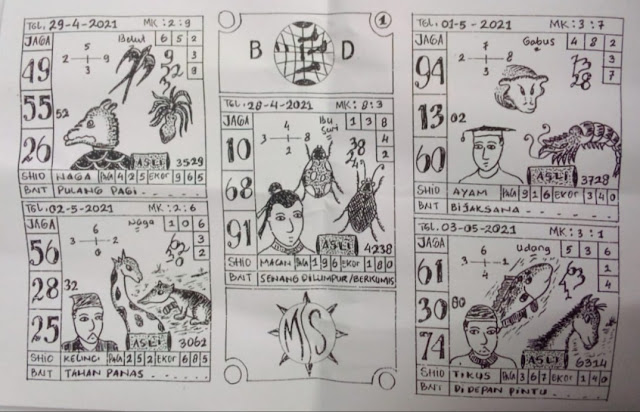 TGL, 29-4-2021 MK: 2:9
JAGA
49
55
26
5
2 + 9
3
Belut
6 5 2
9
3
8
52
ASLI 3529
SHIO NAGA PALA 4 2 5 EKOR 9 6 5
BAIT PULANG PAGI
TGL, 02-5-2021 MK: 2:6
JAGA
56
28
25
3
0 + 6 2
Naga
1 0 6
3
2
62
30
32
ASLI 3062
SHIO KELINCI PALA 2 5 2 EKOR 6 8 5
BAIT TAHAN PANAS
1
B D
TGL: 28-4-2021 MK: 8:3
JAGA
10
68
91
4
3 + 8
2
Ibu Suri
1 3 8
4
2
38
ASLI 4238
SHIO MACAN PALA 1 9 6 EKOR 1 8 0
BAIT SENANG DILUMPUR/BERKUMIS
MS
TGL: 01-5-2021 MK: 3:7
JAGA
94
13
60
7
2 + 8
3
Gabus
4 8 2
3
7
73
28
02
ASLI 3728
SHIO AYAM PALA 9 1 6 EKOR 3 4 0
BAIT BIJAKSANA
TGL: 03-05-2021 MK: 3:1
JAGA
61
30
74
6
3 + 1
4
Udang
5 3 6
1
4
63
80
ASLI 6314
SHIO TIKUS PALA 3 6 7 EKOR 1 4 0
BAIT DIDEPAN PINTU